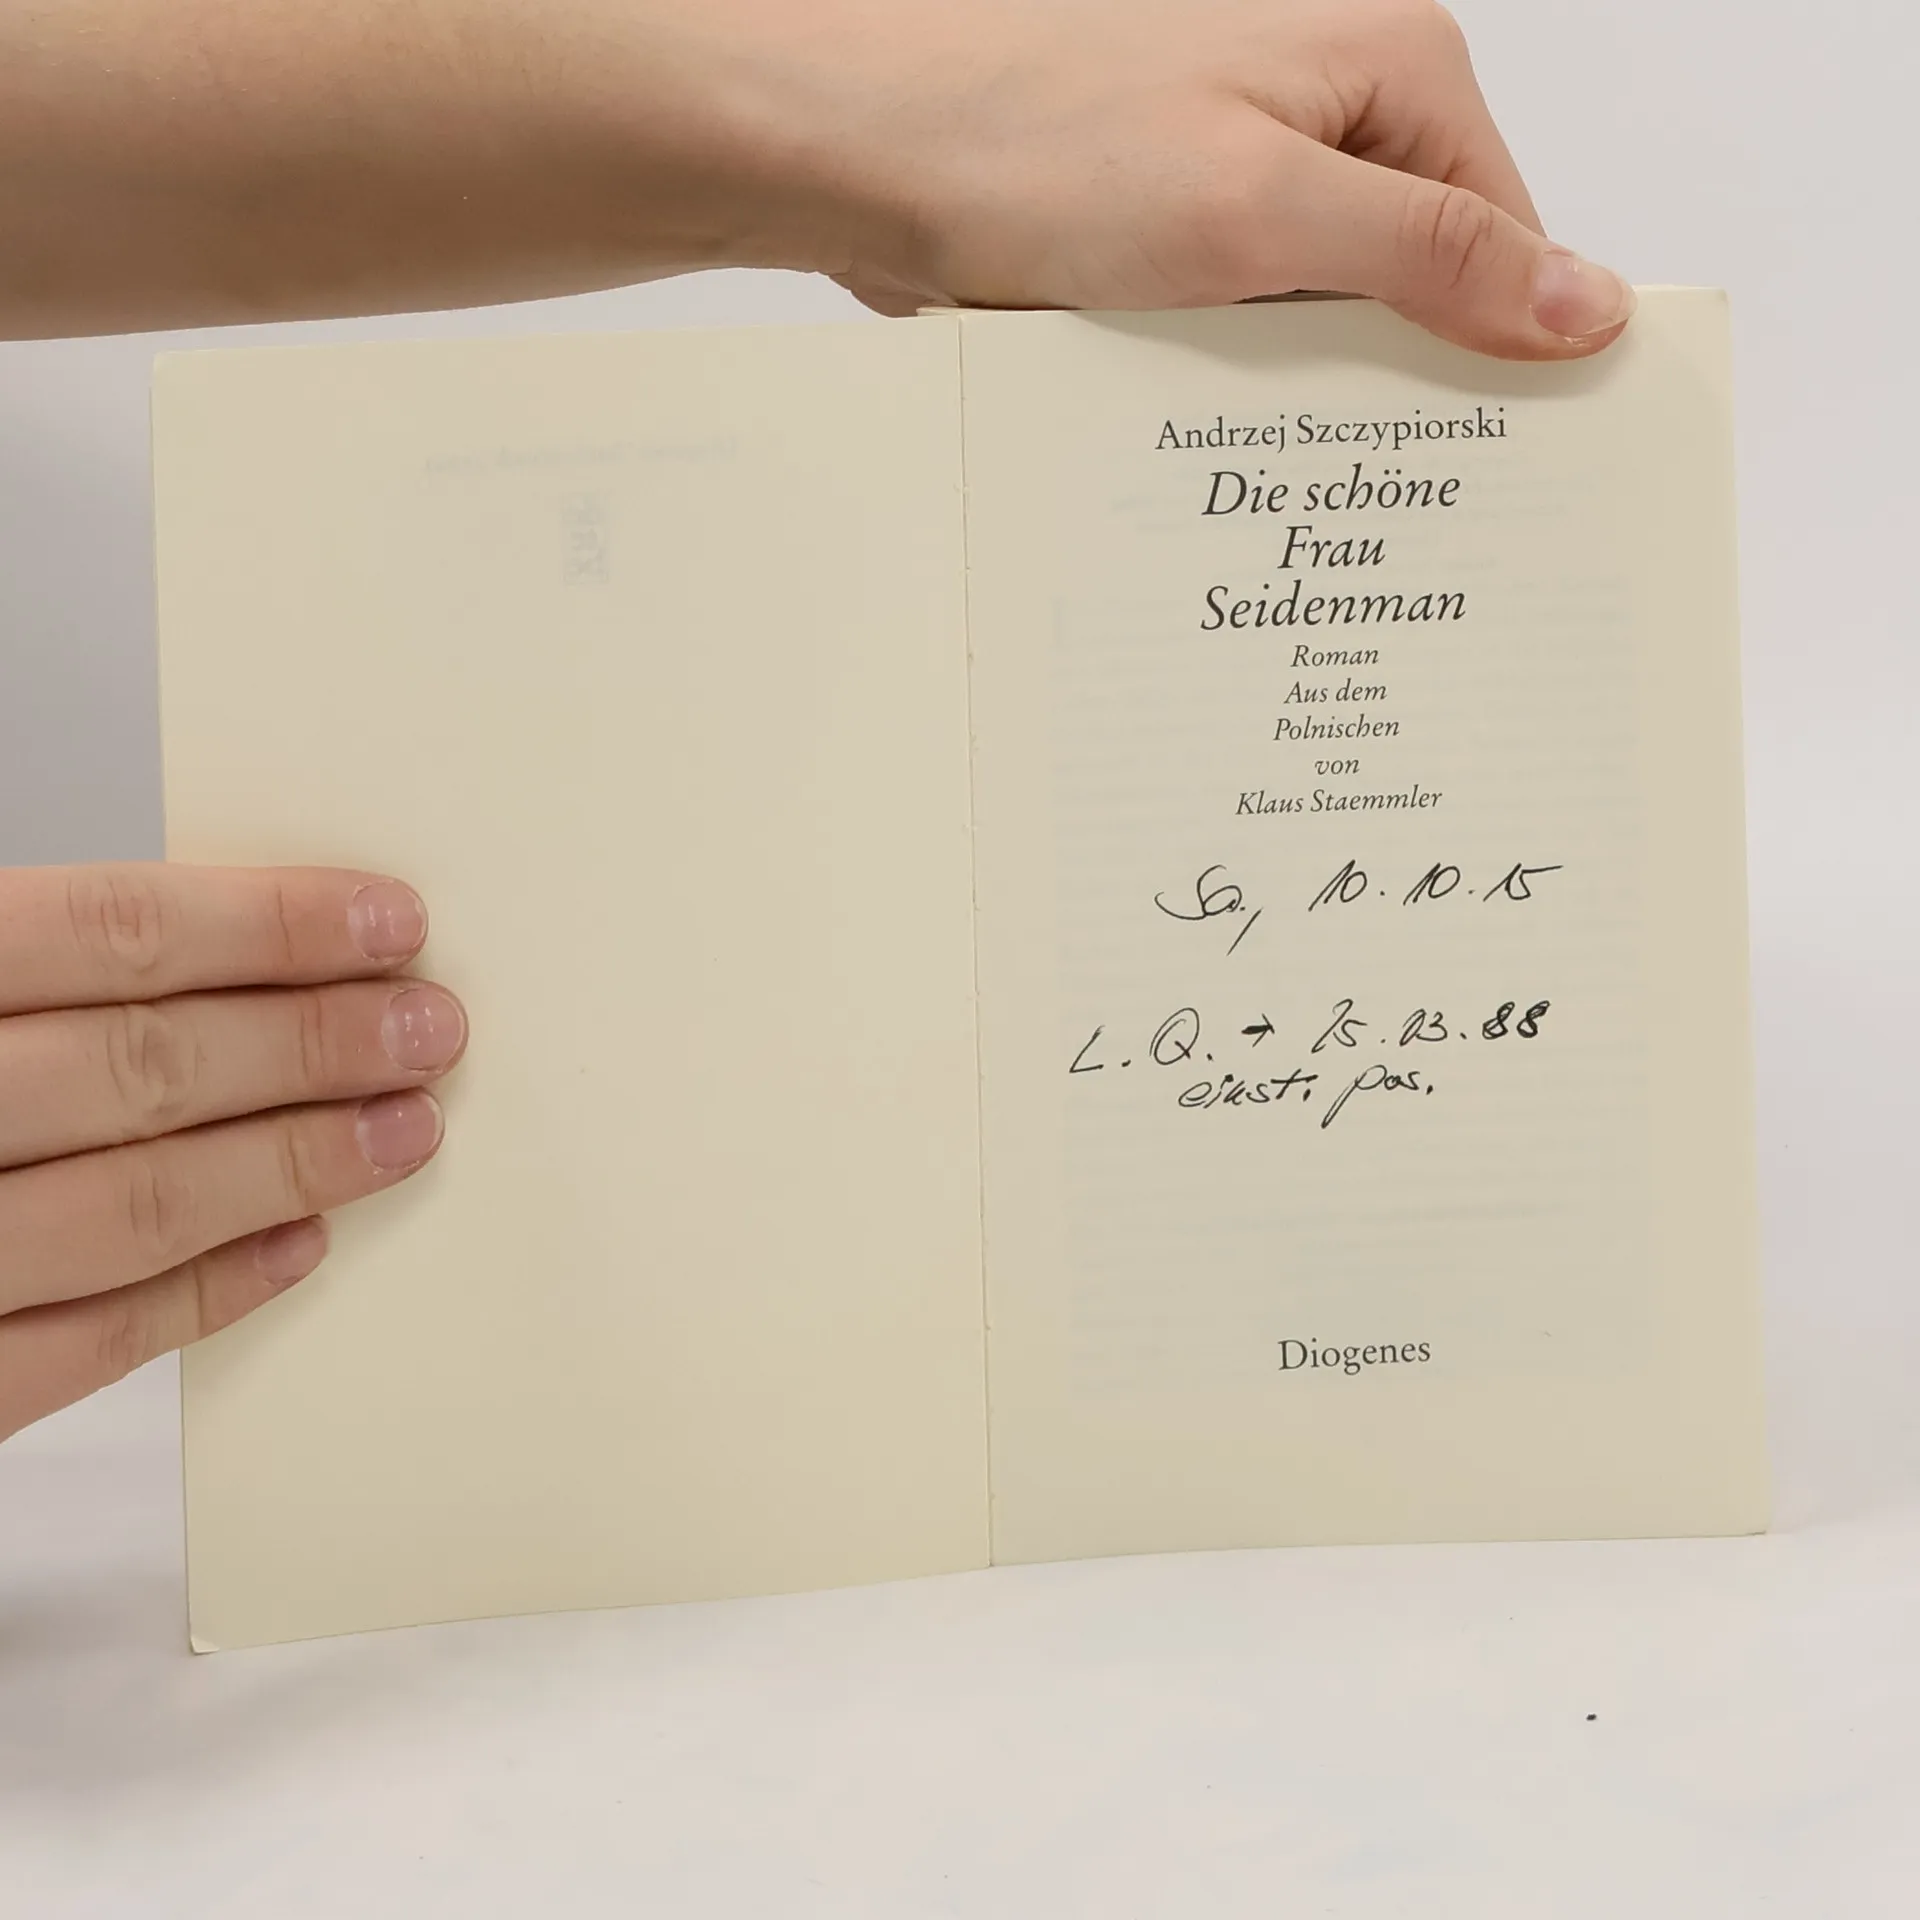 Andrzej Szczypiorski
Die schöne
Frau
Seidenman
Roman
Aus dem
Polnischen
von
Klaus Staemmler
Sa., 10.10.15
L.Q. → 25.03.88
einst. pos.
Diogenes